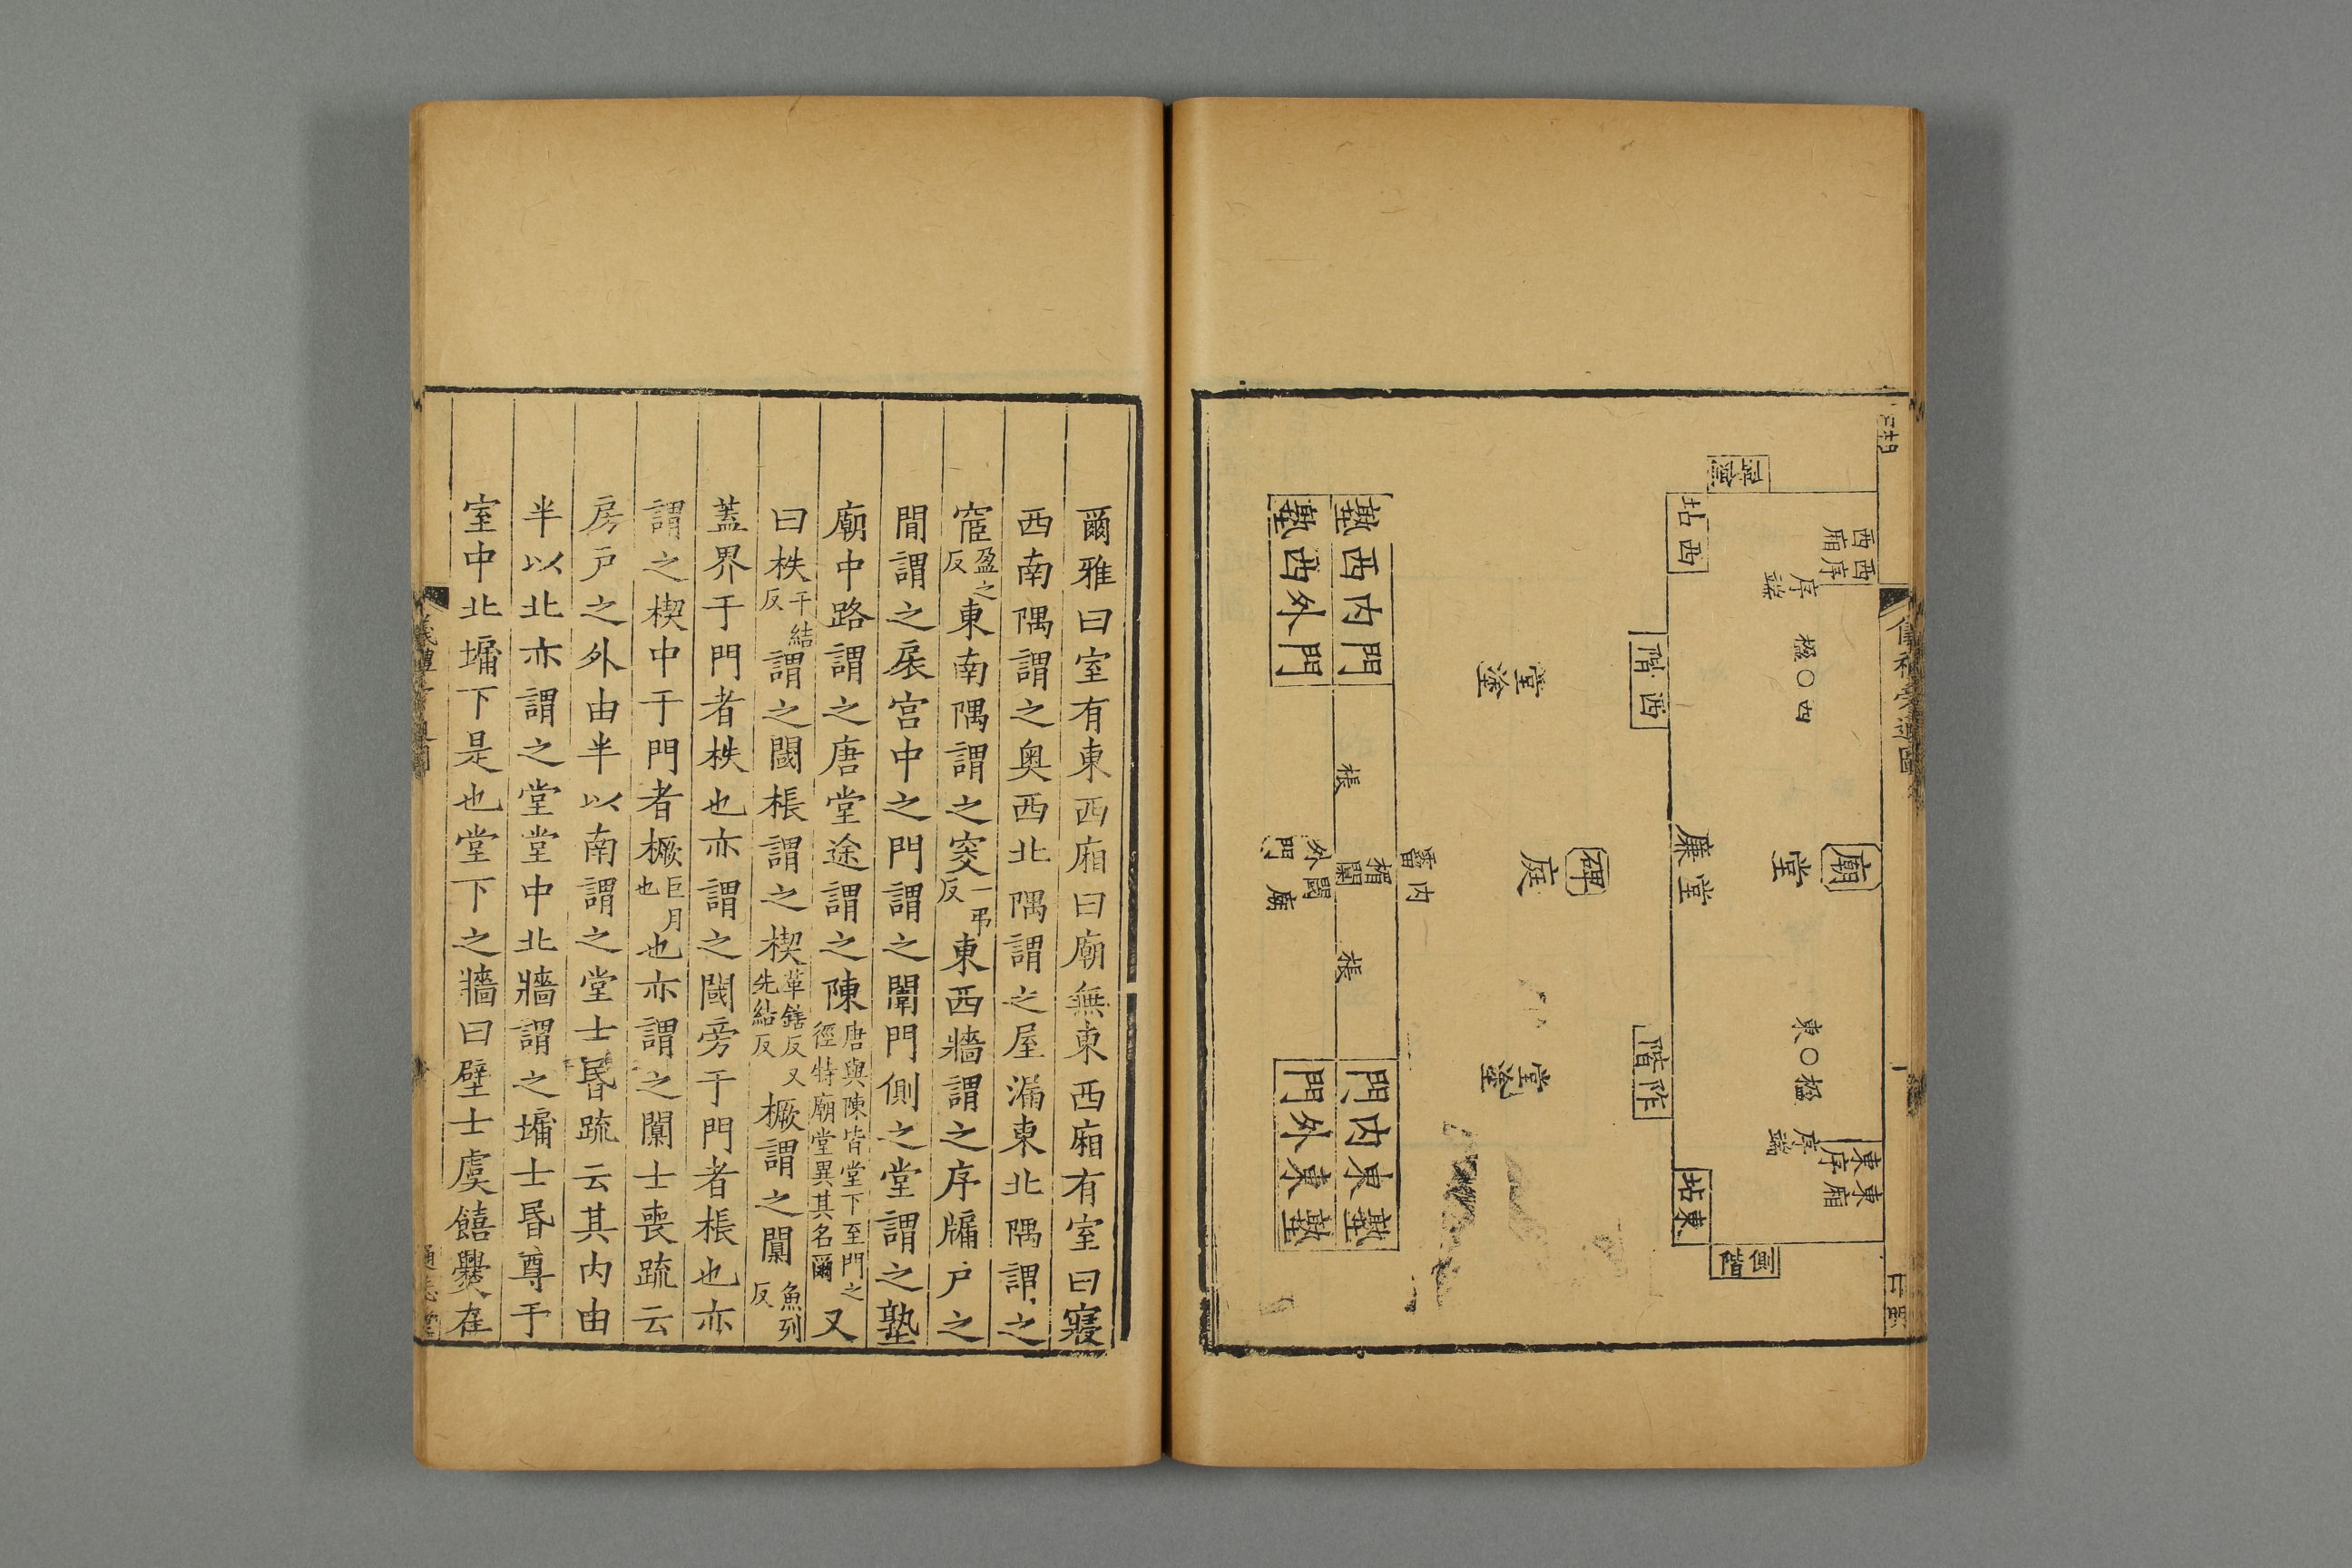 廟
堂
東序
東廂
西序
西廂
序端
序端
東○楹
楹○西
側階
東坫
西坫
堂廉
阼階
西階
碑
庭
堂塗
堂塗
內霤
闑
棖
棖
閾
外
廟門
門內東塾
門外東塾
門內西塾
門外西塾
爾雅曰室有東西廂曰廟無東西廂有室曰寢
西南隅謂之奧西北隅謂之屋漏東北隅謂之
宧盈之反東南隅謂之窔一弔反東西牆謂之序牖戶之
閒謂之扆宮中之門謂之闈門側之堂謂之塾
廟中路謂之唐堂途謂之陳唐與陳皆堂下至門之徑特廟堂異其名爾又
曰柣千結反謂之閾棖謂之楔革鎋反又先結反橛謂之闑魚列反
蓋界于門者柣也亦謂之閾旁于門者棖也亦
謂之楔中于門者橛巨月也也亦謂之闑士喪疏云
房戶之外由半以南謂之堂士昬疏云其內由
半以北亦謂之堂堂中北牆謂之墉士昬尊于
室中北墉下是也堂下之牆曰壁士虞饎爨在
通志堂